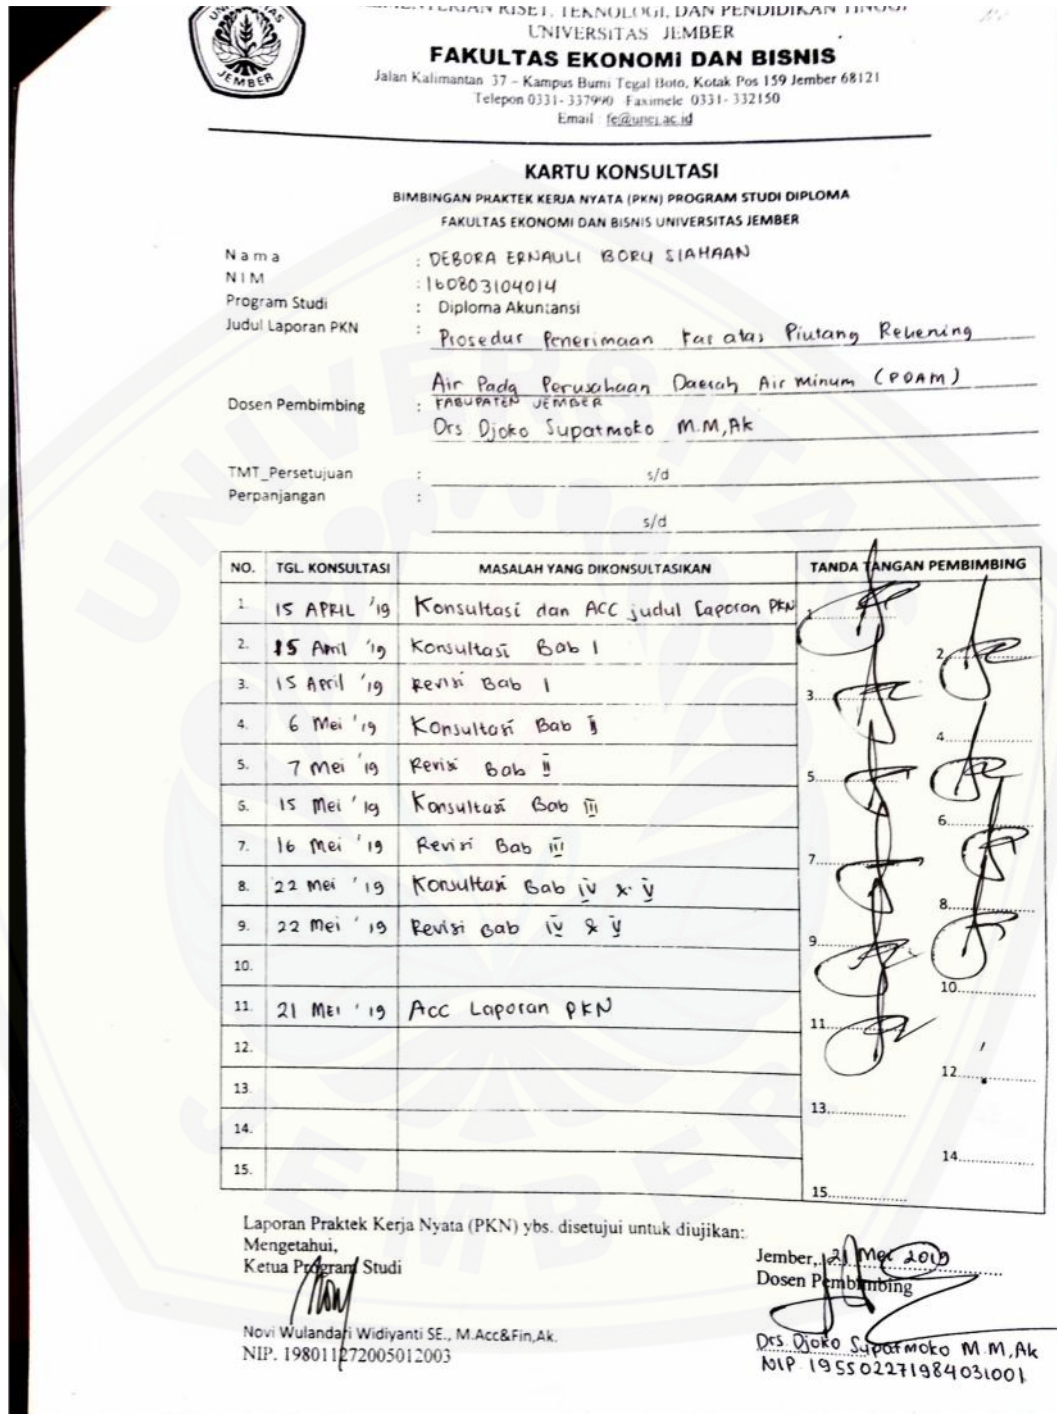 KEMENTERIAN RISET, TEKNOLOGI, DAN PENDIDIKAN TINGGI
UNIVERSITAS JEMBER
FAKULTAS EKONOMI DAN BISNIS
Jalan Kalimantan 37 – Kampus Bumi Tegal Boto, Kotak Pos 159 Jember 68121
Telepon 0331- 337990 Faximele 0331- 332150
Email : fe@unej.ac.id
JEMBER
KARTU KONSULTASI
BIMBINGAN PRAKTEK KERJA NYATA (PKN) PROGRAM STUDI DIPLOMA
FAKULTAS EKONOMI DAN BISNIS UNIVERSITAS JEMBER
N a m a : DEBORA ERNAULI BORU SIAHAAN
N I M : 160803104014
Program Studi : Diploma Akuntansi
Judul Laporan PKN : Prosedur Penerimaan Kas atas Piutang Rekening
Air Pada Perusahaan Daerah Air Minum (PDAM)
KABUPATEN JEMBER
Dosen Pembimbing : Drs Djoko Supatmoko M.M,Ak
TMT_Persetujuan : s/d
Perpanjangan :
s/d
NO. TGL. KONSULTASI MASALAH YANG DIKONSULTASIKAN TANDA TANGAN PEMBIMBING
1. 15 APRIL '19 Konsultasi dan ACC judul Laporan PKN 1
2. 15 April '19 Konsultasi Bab I 2
3. 15 April '19 Revisi Bab I 3
4. 6 Mei '19 Konsultasi Bab II 4
5. 7 Mei '19 Revisi Bab II 5
6. 15 Mei '19 Konsultasi Bab III 6
7. 16 Mei '19 Revisi Bab III 7
8. 22 Mei '19 Konsultasi Bab IV & V 8
9. 22 Mei '19 Revisi Bab IV & V 9
10. 10
11. 21 MEI '19 Acc Laporan PKN 11
12. 12
13. 13
14. 14
15. 15
Laporan Praktek Kerja Nyata (PKN) ybs. disetujui untuk diujikan:
Mengetahui,
Ketua Program Studi
Novi Wulandari Widiyanti SE., M.Acc&Fin,Ak.
NIP. 198011272005012003
Jember, 21 Mei 2019
Dosen Pembimbing
Drs Djoko Supatmoko M.M,Ak
NIP. 195502271984031001
UNIVERSITAS JEMBER